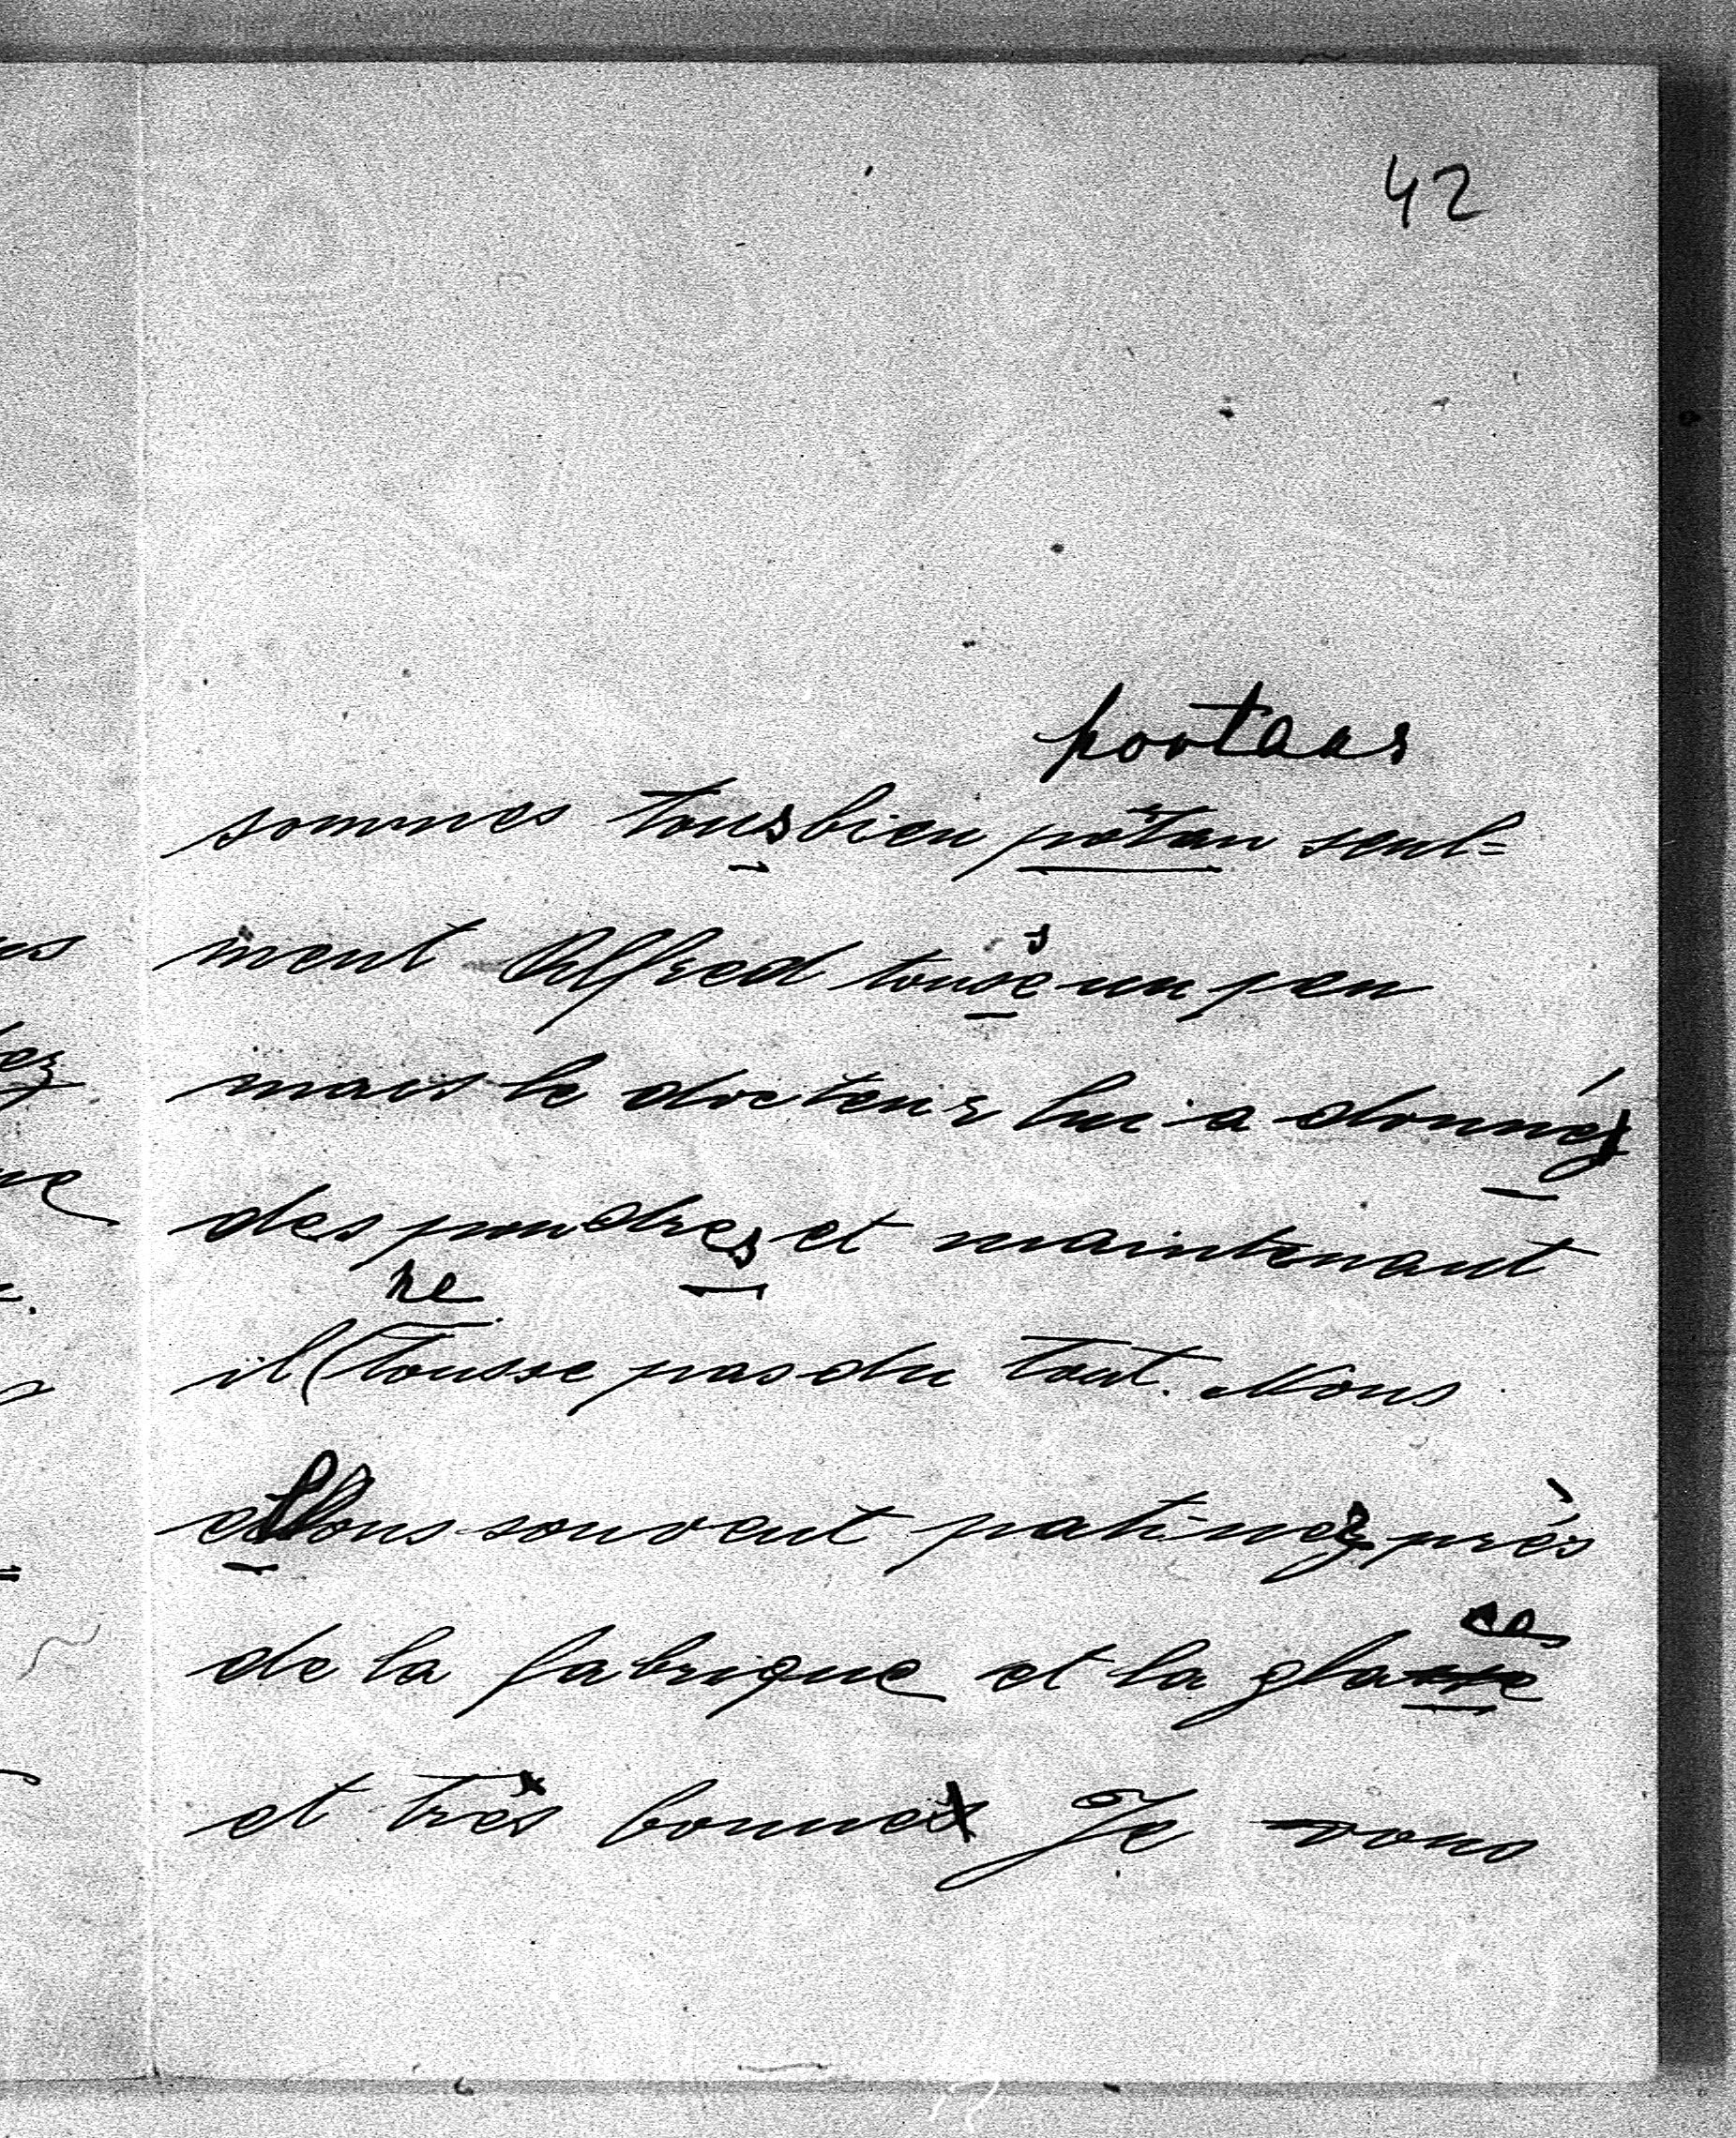 42
portaas
sommes tous bien potan seul=
s
ment Alfred touse un peu
mais le docteur lui a donné
des poudres et maintenant
ne
il tousse pas du tout. Nous
allons souvent patiner près
ce
de la fabrique et la glasse
et très bonne Je vous